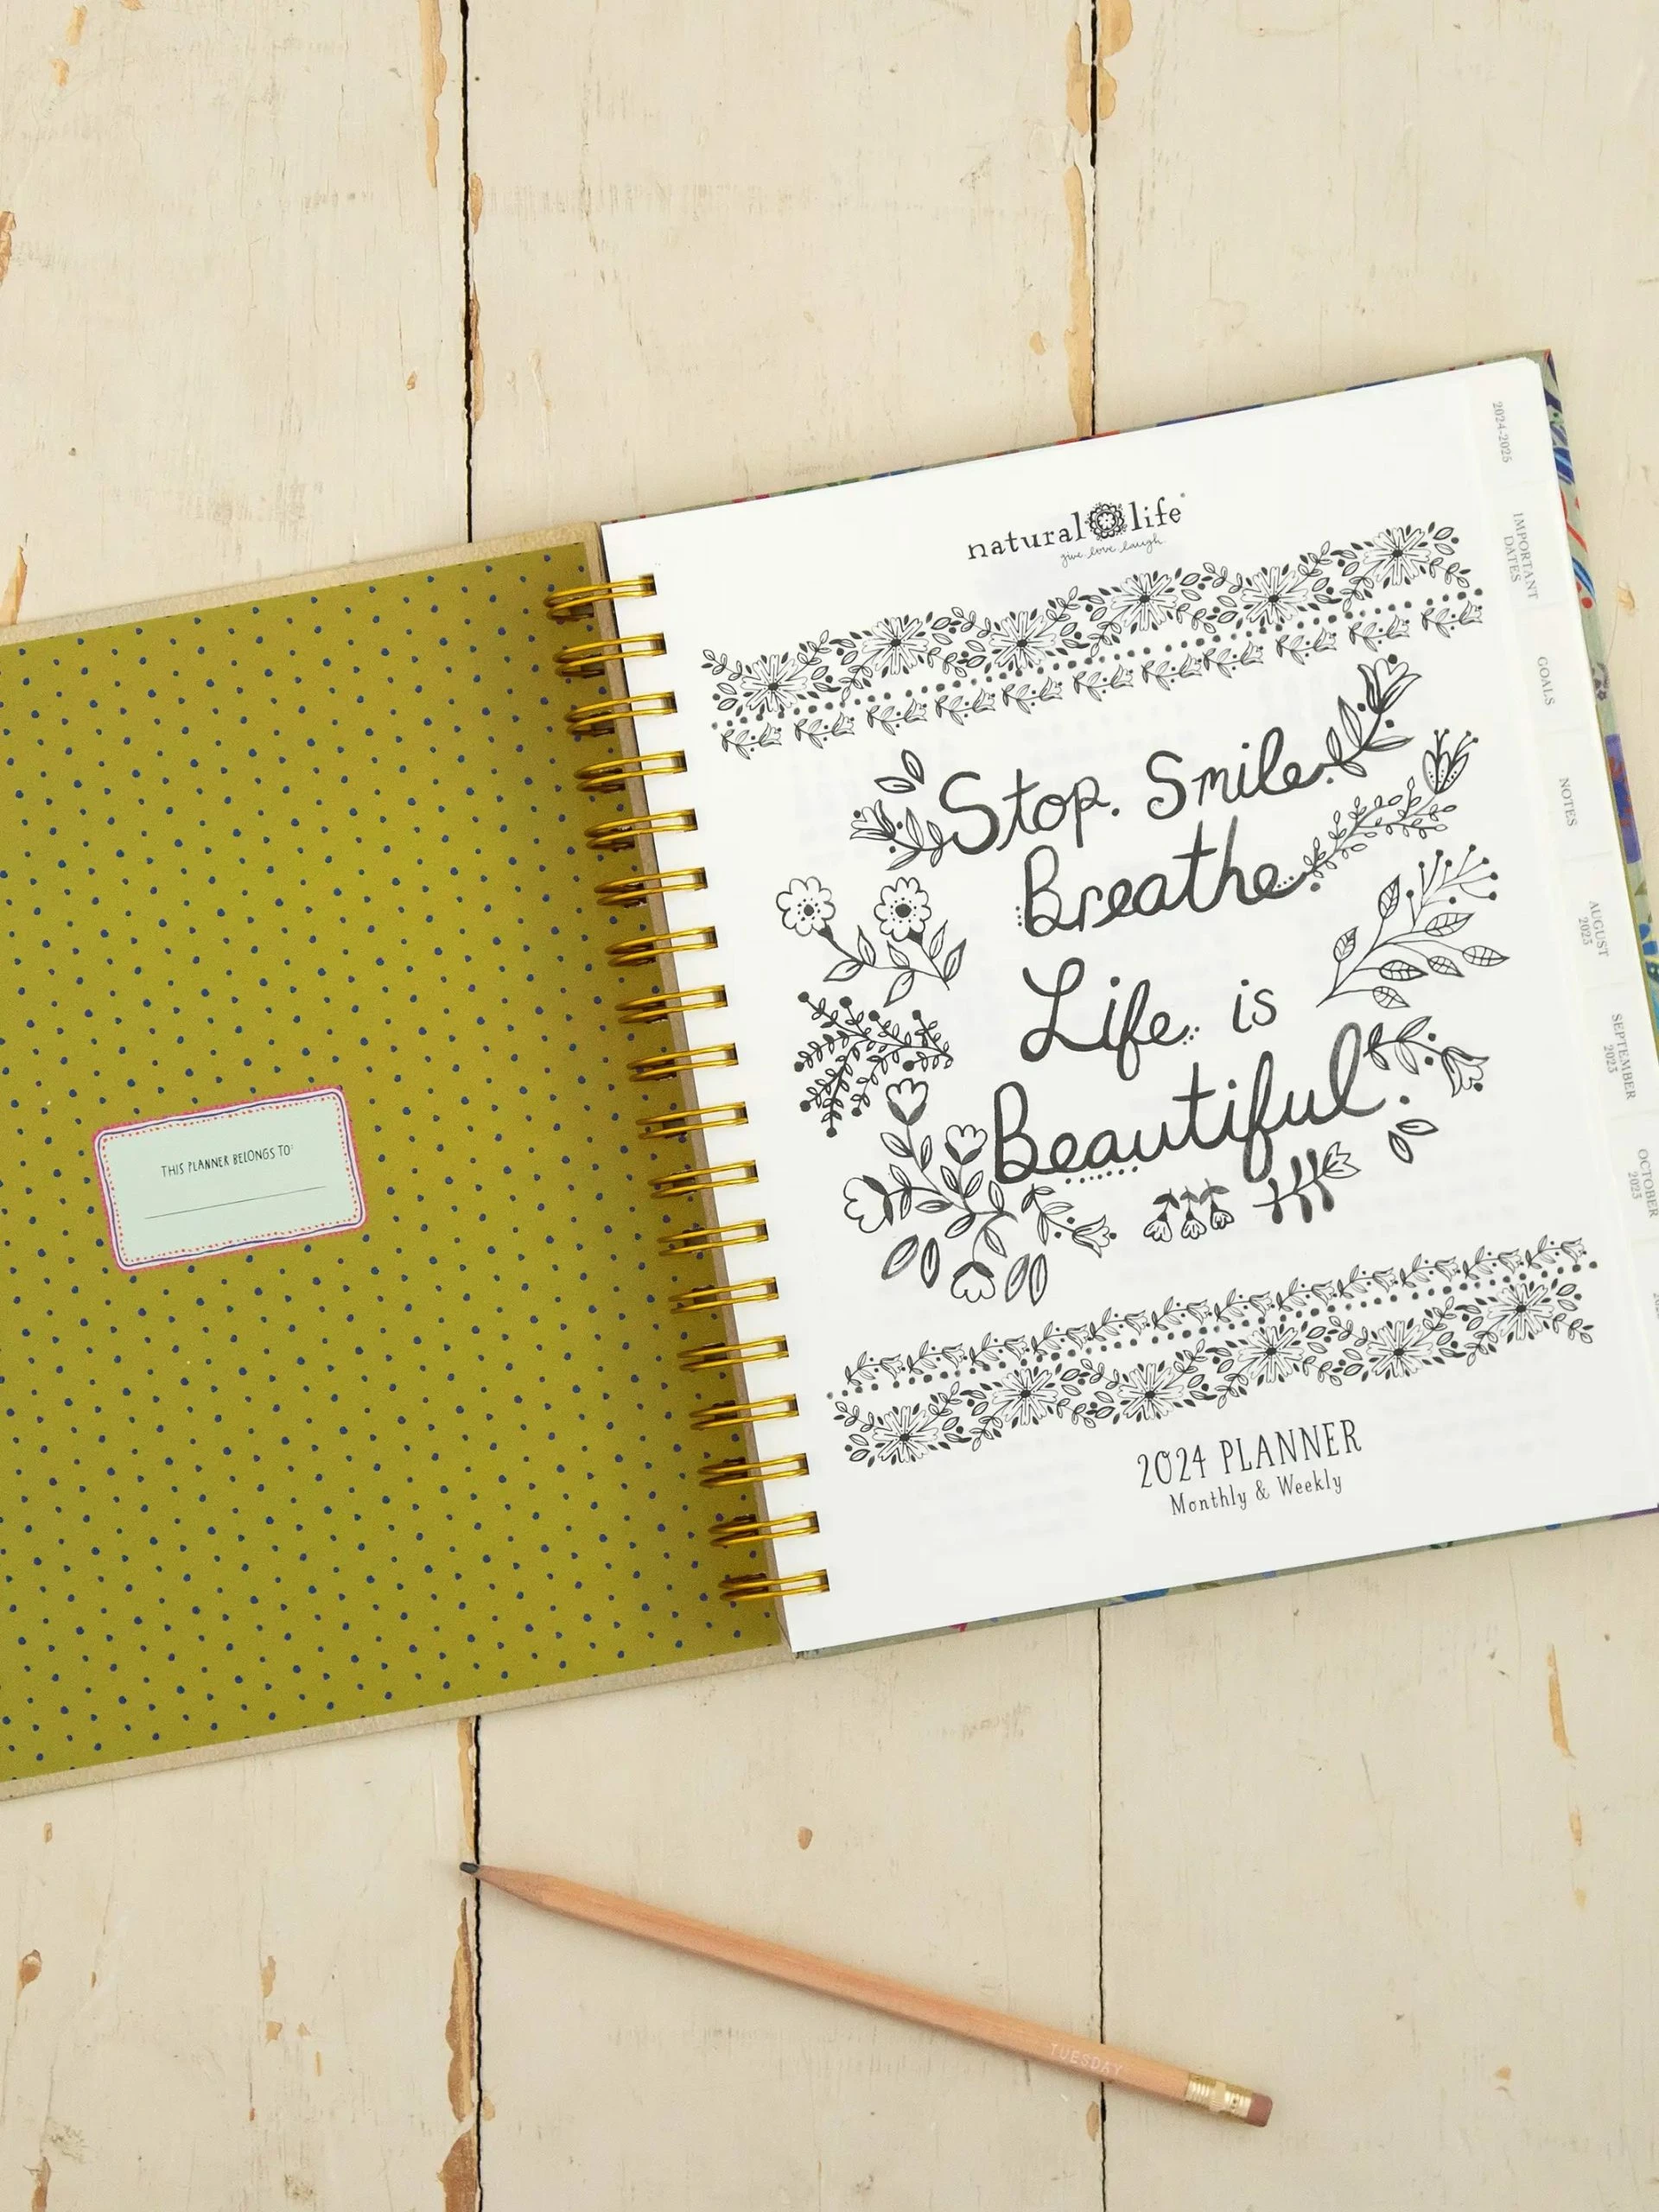 THIS PLANNER BELONGS TO:
natural life
give love laugh
Stop. Smile.
Breathe.
Life is
Beautiful.
2024 PLANNER
Monthly & Weekly
2024-2025
IMPORTANT
DATES
GOALS
NOTES
AUGUST
2023
SEPTEMBER
2023
OCTOBER
2023
TUESDAY